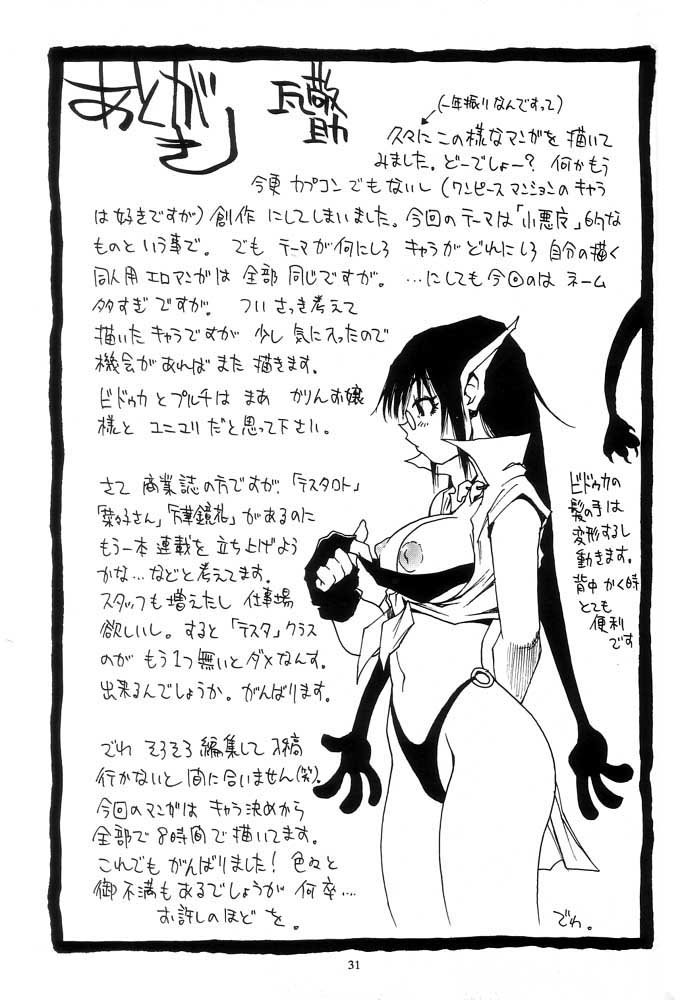 あとがき
瓦敬助
(一年振りなんですって)
久々に この様なマンガを 描いて
みました。どーでしょー? 何かもう
今更 カプコン でもないし (ワンピース マンションの キャラ
は好きですが) 創作 にしてしまいました。今回のテーマは「小悪魔」的な
ものと いう事で。 でも テーマが何にしろ キャラが どれにしろ 自分の描く
同人用 エロマンガは 全部 同じですが。 …にしても今回のは ネーム
多すぎ ですが。 つい さっき考えて
描いた キャラですが 少し 気に入ったので
機会があれば また 描きます。
ビドゥカ と プルチは まあ かりんお嬢
様と ユニユリ だと思って下さい。
さて 商業誌の方ですが、「テスタロト」
「菜々子さん」「万華鏡花」があるのに
もう一本 連載を 立ち上げよう
かな… などと 考えてます。
スタッフも 増えたし 仕事場
欲しいし。 すると 「テスタ」クラス
のが もう1つ 無いと ダメなんす。
出来るんでしょうか。がんばります。
でわ そろそろ 編集して 入稿
行かないと 間に合いません(笑)。
今回のマンガは キャラ決めから
全部で 8時間で 描いてます。
これでも がんばりました! 色々と
御不満も あるでしょうが 何卒…
お許しのほど を。
ビドゥカの
髪の手は
変形するし
動きます。
背中 かく時
とても
便利
です
でわ。
31